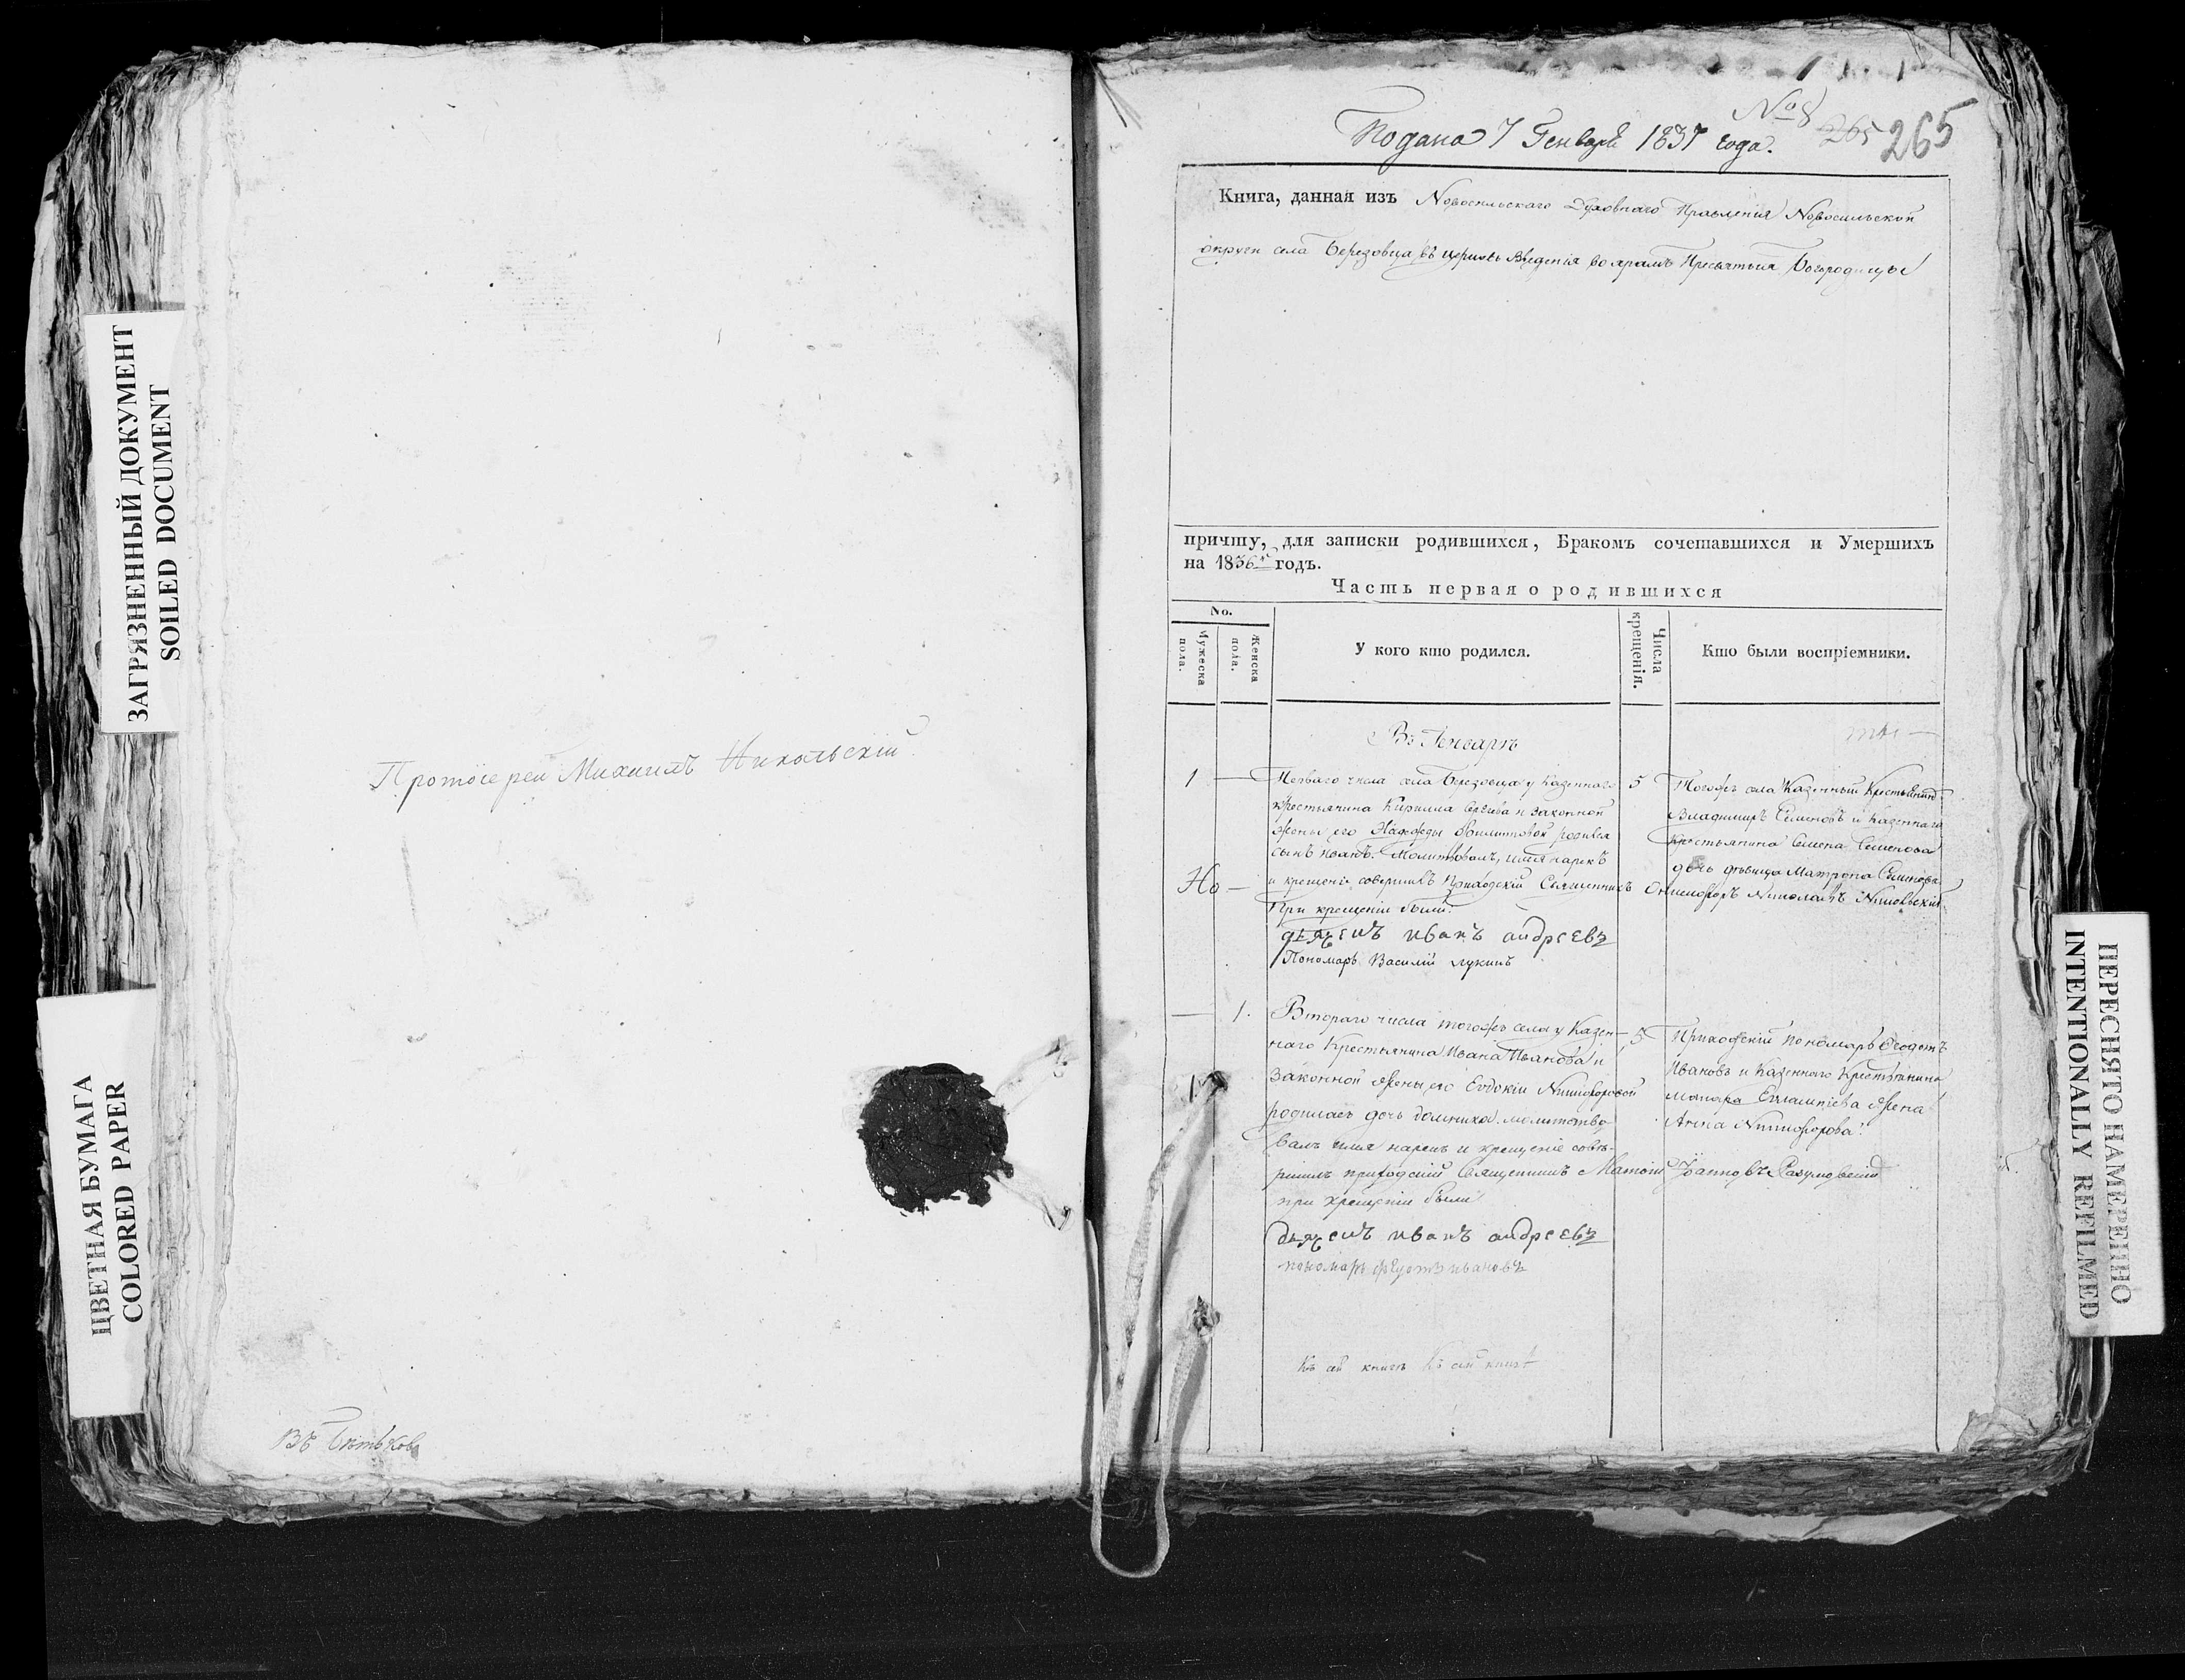 ЗАГРЯЗНЕННЫЙ ДОКУМЕНТ
SOILED DOCUMENT
ЦВЕТНАЯ БУМАГА
COLORED PAPER
Протоіерей Михаилъ Никольскій
Въ
№ 8
Подана 7 Генваря 1837 года. 265 265
Книга, данная изъ Новосильскаго Духовнаго Правленія Новосильской
округи села Березовца въ церковь Введенія во храмъ Пресвятыя Богородицы
причту, для записки родившихся, Бракомъ сочетавшихся и Умершихъ
на 1836й годъ.
Часть первая о родившихся
No.
Мужеска пола.
Женска пола.
У кого кто родился.
Числа крещенія.
Кто были воспріемники.
Въ Генварѣ
1 — Перваго числа села Березовца у Казеннаго 5 Тогожъ села Казенный Крестьянинъ
крестьянина Кирилла Сергѣева и законной Владимиръ Семеновъ и казеннаго
жены его Надежды родился крестьянина Семена Семенова
сынъ Иванъ. Молитвовалъ, имя нарекъ дочь дѣвица Матрона Семенова
и крещеніе совершилъ Приходскій Священникъ Никифоръ Николаевъ
При крещеніи были:
дьячекъ иванъ андреевъ
Пономарь Василій Лукинъ
— 1. Втораго числа тогожъ села у Казен- 5 Приходскій пономарь Феодотъ
наго Крестьянина Ивана Иванова и Ивановъ и Казеннаго Крестьянина
Законной жены его Евдокіи Никифоровой Евлампіева жена
родилась дочь Домника. молитство- Анна Никифорова.
валъ имя нарекъ и крещеніе совер-
шилъ приходскій Священникъ Матвій Іоанновъ Разумовскій
при крещеніи были
дьячекъ иванъ андреевъ
пономарь федотъ ивановъ
Къ сей книгѣ Къ сей книгѣ
ПЕРЕСНЯТО НАМЕРЕННО
INTENTIONALLY REFILMED